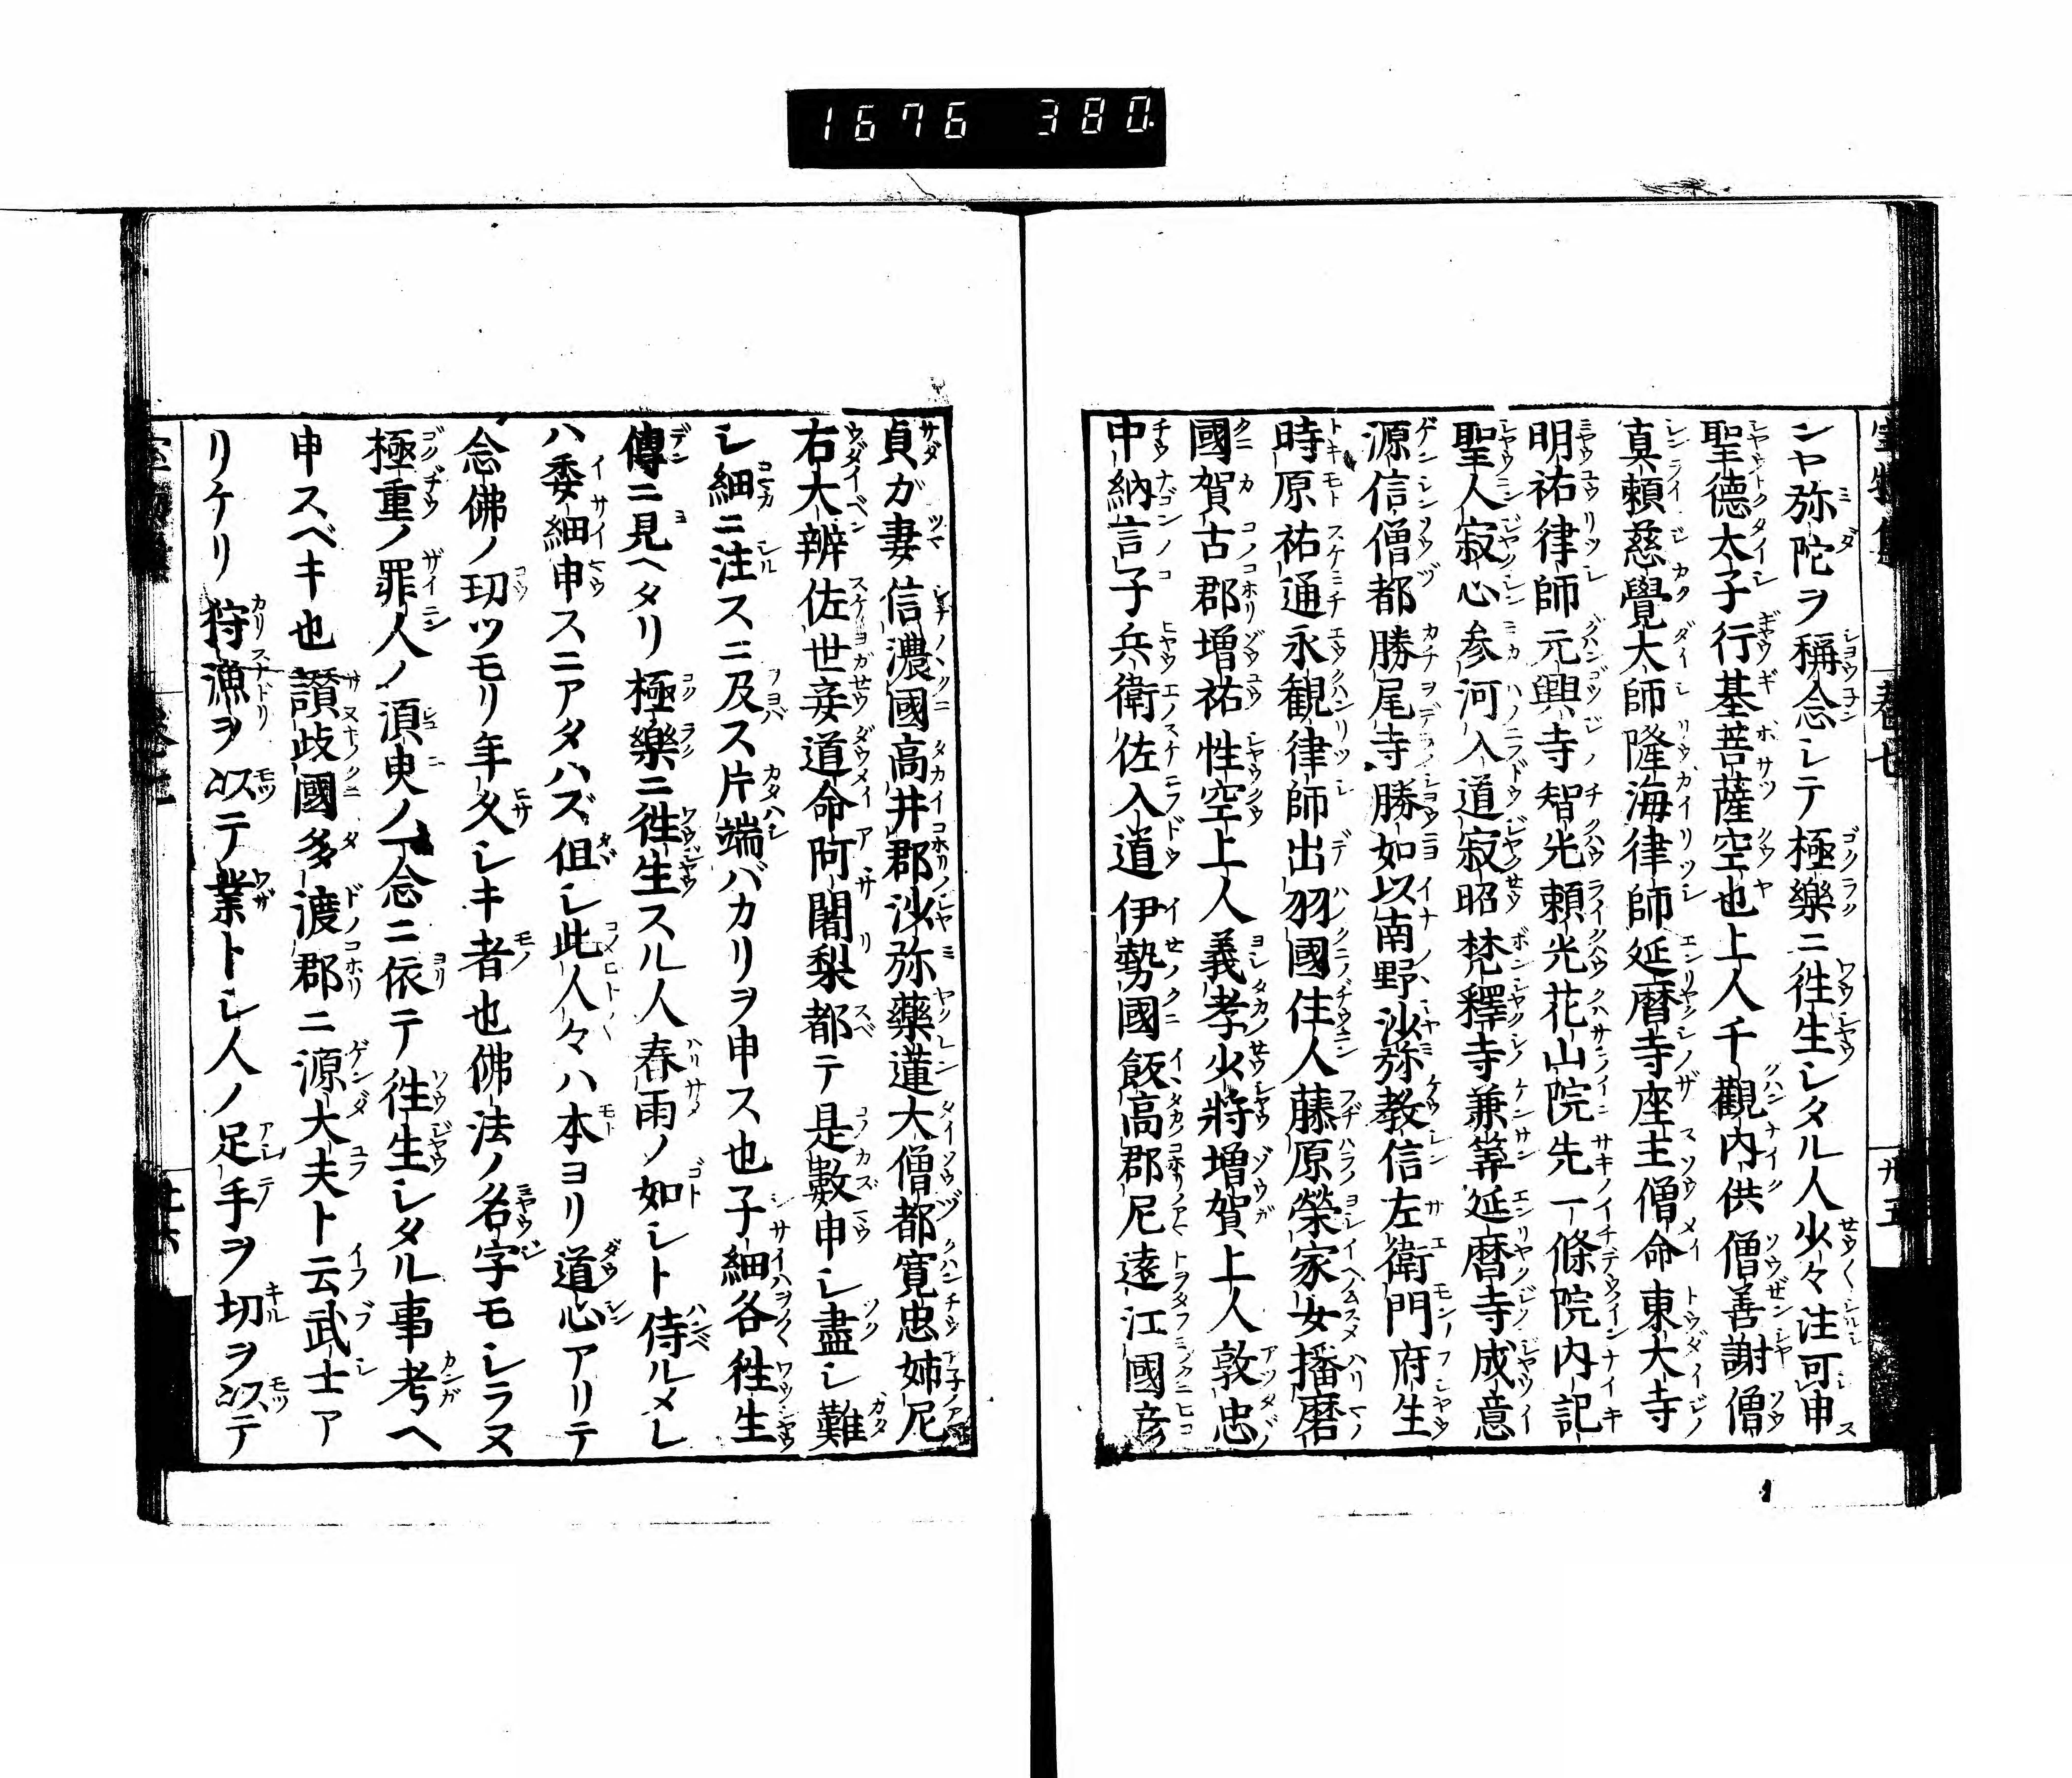 1676 380.
ンヤ弥陀ヲ稱念シテ極樂ニ徃生シタル人少々注可申
聖德太子行基菩薩空也上人千觀内供僧善謝僧
真頼慈覺大師隆海律師延曆寺座主僧命東大寺
明祐律師元興寺智光頼光花山院先一條院内記
聖人寂心参河入道寂昭梵釋寺兼筭延曆寺成意
源信僧都勝尾寺勝如以南野沙弥教信左衛門府生
時原祐通永観律師出羽國住人藤原榮家女播磨
國賀古郡増祐性空上人義孝少将増賀上人敦忠
中納言子兵衛佐入道伊勢國飯高郡尼遠江國彦
貞ガ妻信濃國高井郡沙弥藥蓮大僧都寛忠姉尼
右大辨佐世妾道命阿闍梨都テ是數申シ盡シ難
シ細ニ注スニ及ス片端バカリヲ申ス也子細各徃生
傳ニ見ヘタリ極樂ニ徃生スル人春雨ノ如シト侍ルメレ
ハ委細申スニアタハズ但シ此人々ハ本ヨリ道心アリテ
念佛ノ功ツモリ年久シキ者也佛法ノ名字モシラヌ
極重ノ罪人ノ須臾ノ一念ニ依テ徃生シタル事考ヘ
申スベキ也讃歧國多渡郡ニ源大夫ト云武士ア
リケリ狩漁ヲ以テ業トシ人ノ足手ヲ切ヲ以テ